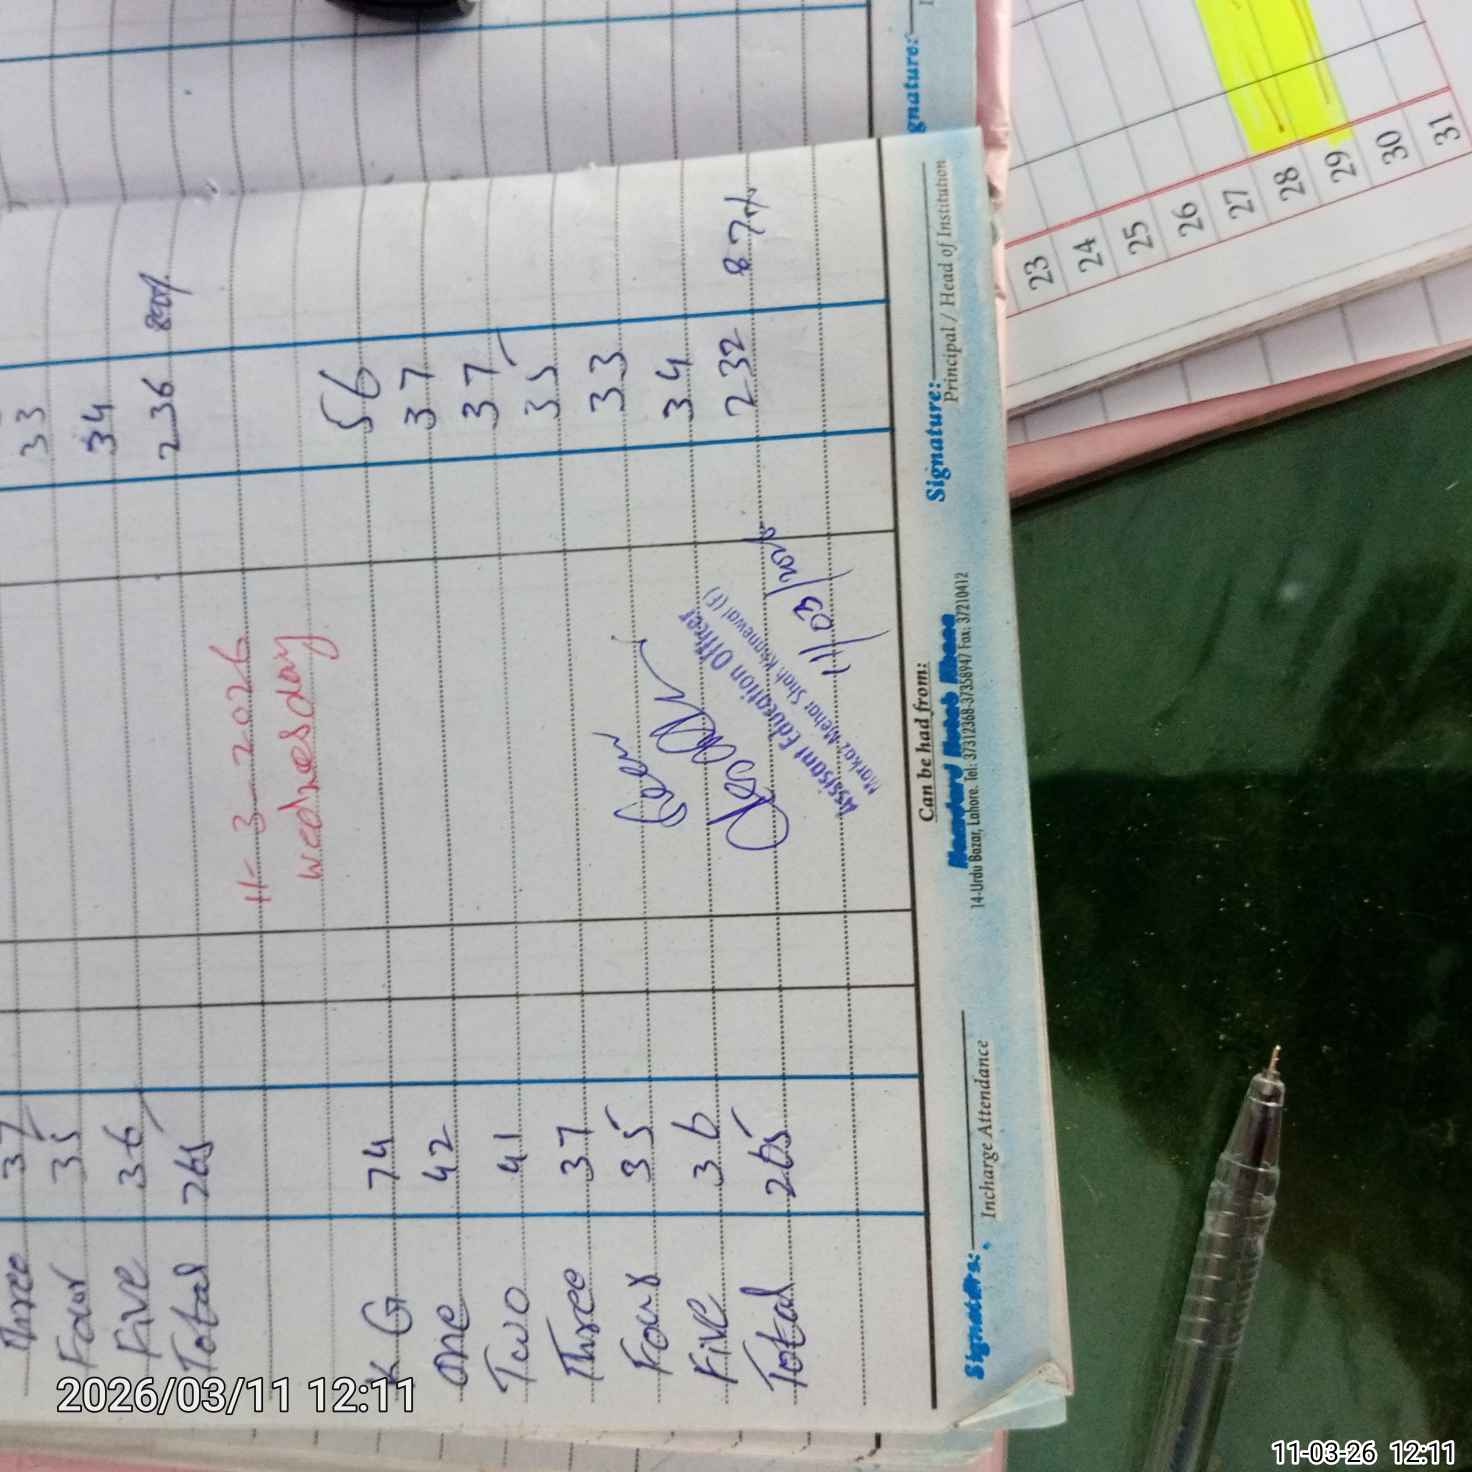 Three 37 33
Four 35 34
Five 36
Total 265 236
11-3-2026
wednesday
KG 74 56
One 42 37
Two 41 37
Three 37 35
Four 35 33
Five 36 34
Total 265 232 87%
Seen
Assistant Education Officer
Markaz Mehar Shah Khanewal (F)
11/03/2026
Signature: Incharge Attendance
Can be had from:
Hamdard Kutab Khana
14-Urdu Bazar, Lahore. Tel: 37312368-37358947 Fax: 37210412
Signature: Principal / Head of Institution
gnature:
23
24
25
26
27
28
29
30
31
2026/03/11 12:11
11-03-26 12:11